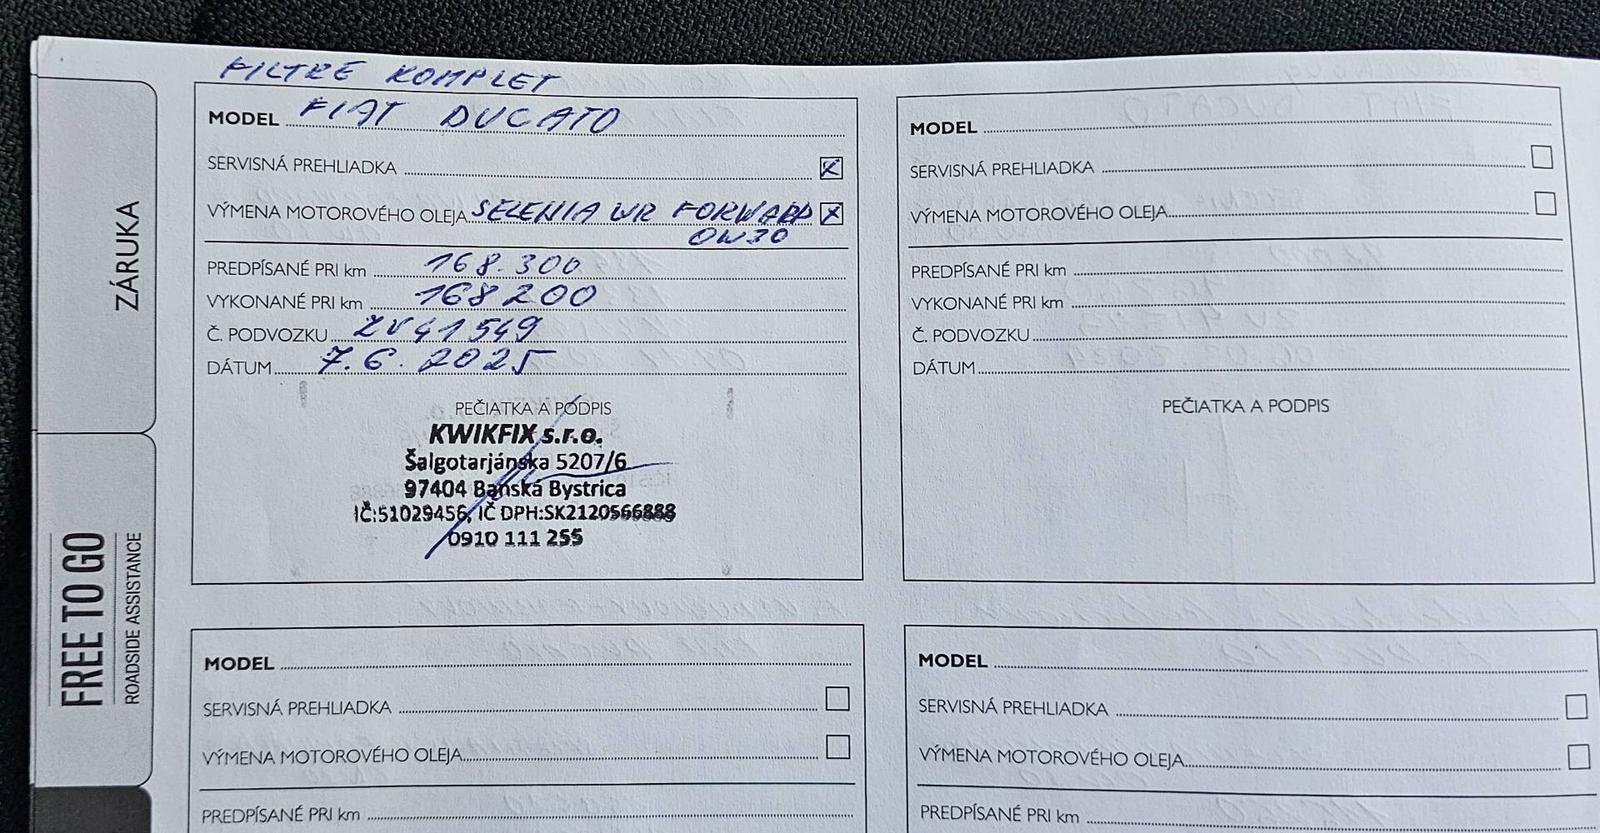 FILTRE KOMPLET
MODEL FIAT DUCATO
SERVISNÁ PREHLIADKA X
VÝMENA MOTOROVÉHO OLEJA SELENIA WR FORWARD X
0W30
PREDPÍSANÉ PRI km 168.300
VYKONANÉ PRI km 168200
Č. PODVOZKU ZV41549
DÁTUM 7.6.2025
PEČIATKA A PODPIS
KWIKFIX s.r.o.
Šalgotarjánska 5207/6
97404 Banská Bystrica
IČ:51029456, IČ DPH:SK2120566888
0910 111 255
MODEL
SERVISNÁ PREHLIADKA
VÝMENA MOTOROVÉHO OLEJA
PREDPÍSANÉ PRI km
VYKONANÉ PRI km
Č. PODVOZKU
DÁTUM
PEČIATKA A PODPIS
MODEL
SERVISNÁ PREHLIADKA
VÝMENA MOTOROVÉHO OLEJA
PREDPÍSANÉ PRI km
MODEL
SERVISNÁ PREHLIADKA
VÝMENA MOTOROVÉHO OLEJA
PREDPÍSANÉ PRI km
ZÁRUKA
FREE TO GO
ROADSIDE ASSISTANCE